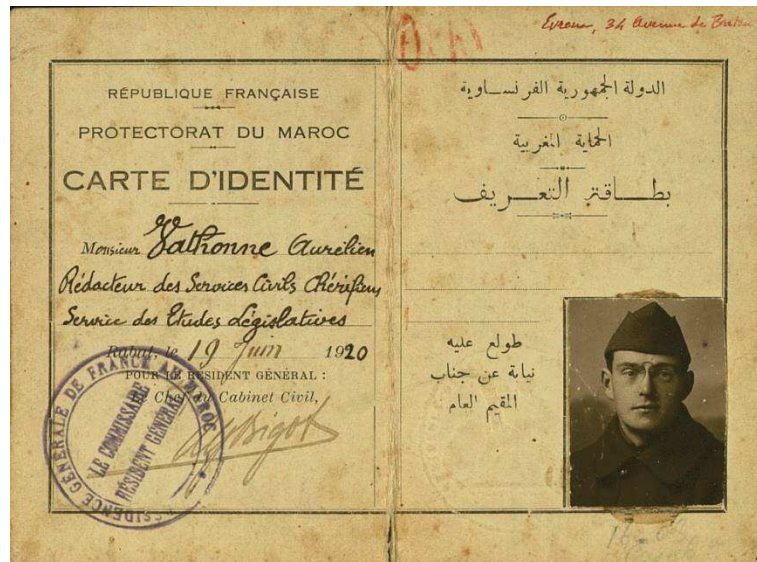 RÉPUBLIQUE FRANÇAISE
PROTECTORAT DU MAROC
CARTE D'IDENTITÉ
Monsieur Vathonne Aurélien
Rédacteur des Services Civils Chérifiens
Service des Etudes Législatives
Rabat, le 19 Juin 1920
POUR LE RÉSIDENT GÉNÉRAL :
Le Chef du Cabinet Civil,
RÉSIDENCE GÉNÉRALE DE FRANCE AU MAROC
LE COMMISSAIRE
RÉSIDENT GÉNÉRAL
34 Avenue de
الدولة الجمهورية الفرنساوية
الحماية المغربية
بطاقة التعريف
طولع عليه
نيابة عن جناب
المقيم العام